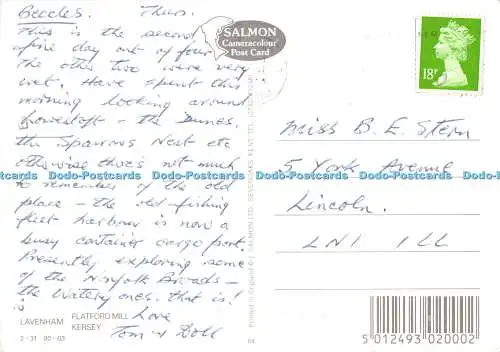 Beccles. Thurs.
This is the second
fine day out of four
the other two were very
wet. Have spent this
morning looking around
Lowestoft - the Dunes,
the Sparrows Nest etc
otherwise there's not much
to remember of the old
place - the old fishing
fleet harbour is now a
busy container cargo port.
Presently exploring some
of the Norfolk Broads -
the Watery ones. that is!
Love
Tom & Doll
LAVENHAM
FLATFORD MILL
KERSEY
2-31-00-03
SALMON
Cameracolour
Post Card
Printed in England © J. SALMON LTD., SEVENOAKS, KENT, TEL:
18P
Miss B. E. Stern
5 York Avenue
Lincoln.
LN1 1LL
Dodo-Postcards Dodo-Postcards Dodo-Postcards Dodo-Postcards Dodo-Postcards
5 012493 020002